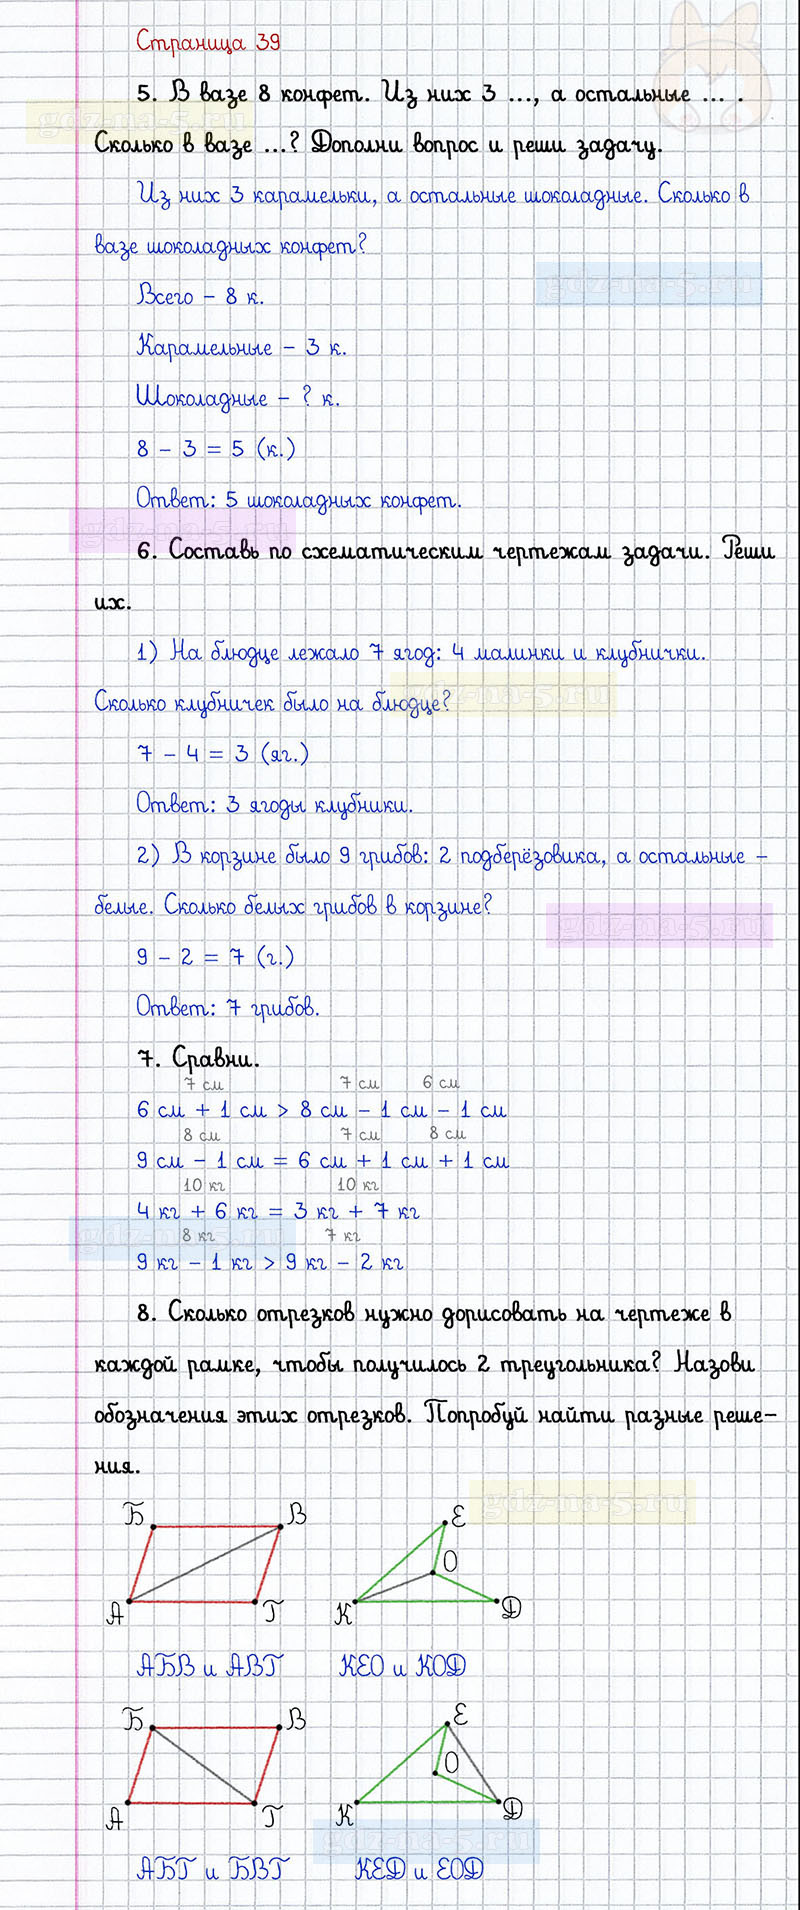 Страница 39
5. В вазе 8 конфет. Из них 3 ..., а остальные ... .
gdz-na-5.ru
Сколько в вазе ...? Дополни вопрос и реши задачу.
Из них 3 карамельки, а остальные шоколадные. Сколько в
вазе шоколадных конфет?
gdz-na-5.ru
Всего – 8 к.
Карамельные – 3 к.
Шоколадные – ? к.
8 – 3 = 5 (к.)
Ответ: 5 шоколадных конфет.
gdz-na-5.ru
6. Составь по схематическим чертежам задачи. Реши
их.
1) На блюдце лежало 7 ягод: 4 малинки и клубнички.
gdz-na-5.ru
Сколько клубничек было на блюдце?
7 – 4 = 3 (яг.)
Ответ: 3 ягоды клубники.
2) В корзине было 9 грибов: 2 подберёзовика, а остальные –
белые. Сколько белых грибов в корзине?
gdz-na-5.ru
9 – 2 = 7 (г.)
Ответ: 7 грибов.
7. Сравни.
7 см 7 см 6 см
6 см + 1 см > 8 см – 1 см – 1 см
8 см 7 см 8 см
9 см – 1 см = 6 см + 1 см + 1 см
10 кг 10 кг
4 кг + 6 кг = 3 кг + 7 кг
gdz-na-5.ru
8 кг 7 кг
9 кг – 1 кг > 9 кг – 2 кг
8. Сколько отрезков нужно дорисовать на чертеже в
каждой рамке, чтобы получилось 2 треугольника? Назови
обозначения этих отрезков. Попробуй найти разные реше-
ния.
gdz-na-5.ru
Б В Е
О
А Г К Д
АБВ и АВГ КЕО и КОД
Б В Е
О
А Г К Д
gdz-na-5.ru
АБГ и БВГ КЕД и ЕОД